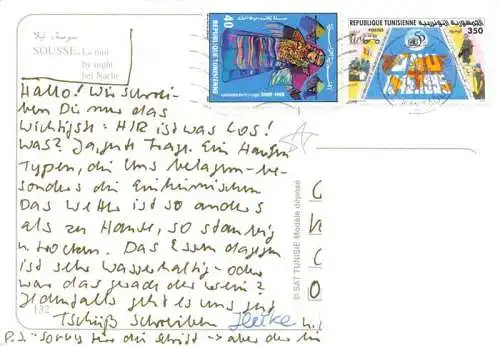 سوسة، ليلا
SOUSSE, La nuit
by night
bei Nacht
REPUBLIQUE TUNISIENNE
40
REPUBLIQUE TUNISIENNE
الجمهورية التونسية
POSTES
350
50
Hallo! Wir schrei-
ben Dir nur das
wichtigste: HIR ist was los!
was? Ja, gute Frage. Ein Haufen
Typen, die uns belagern - be-
sonders die Einheimischen
Das Wetter ist so anders
als zu Hause, so staubig
u. trocken. Das Essen dagegen
ist sehr wasserhaltig - oder
war das gerade der Wein?
Jedenfalls geht es uns gut
Tschüß schreiben Heike
132
P.S. Sorry für die Schrift - aber der
© SAT TUNISIE Modèle déposé